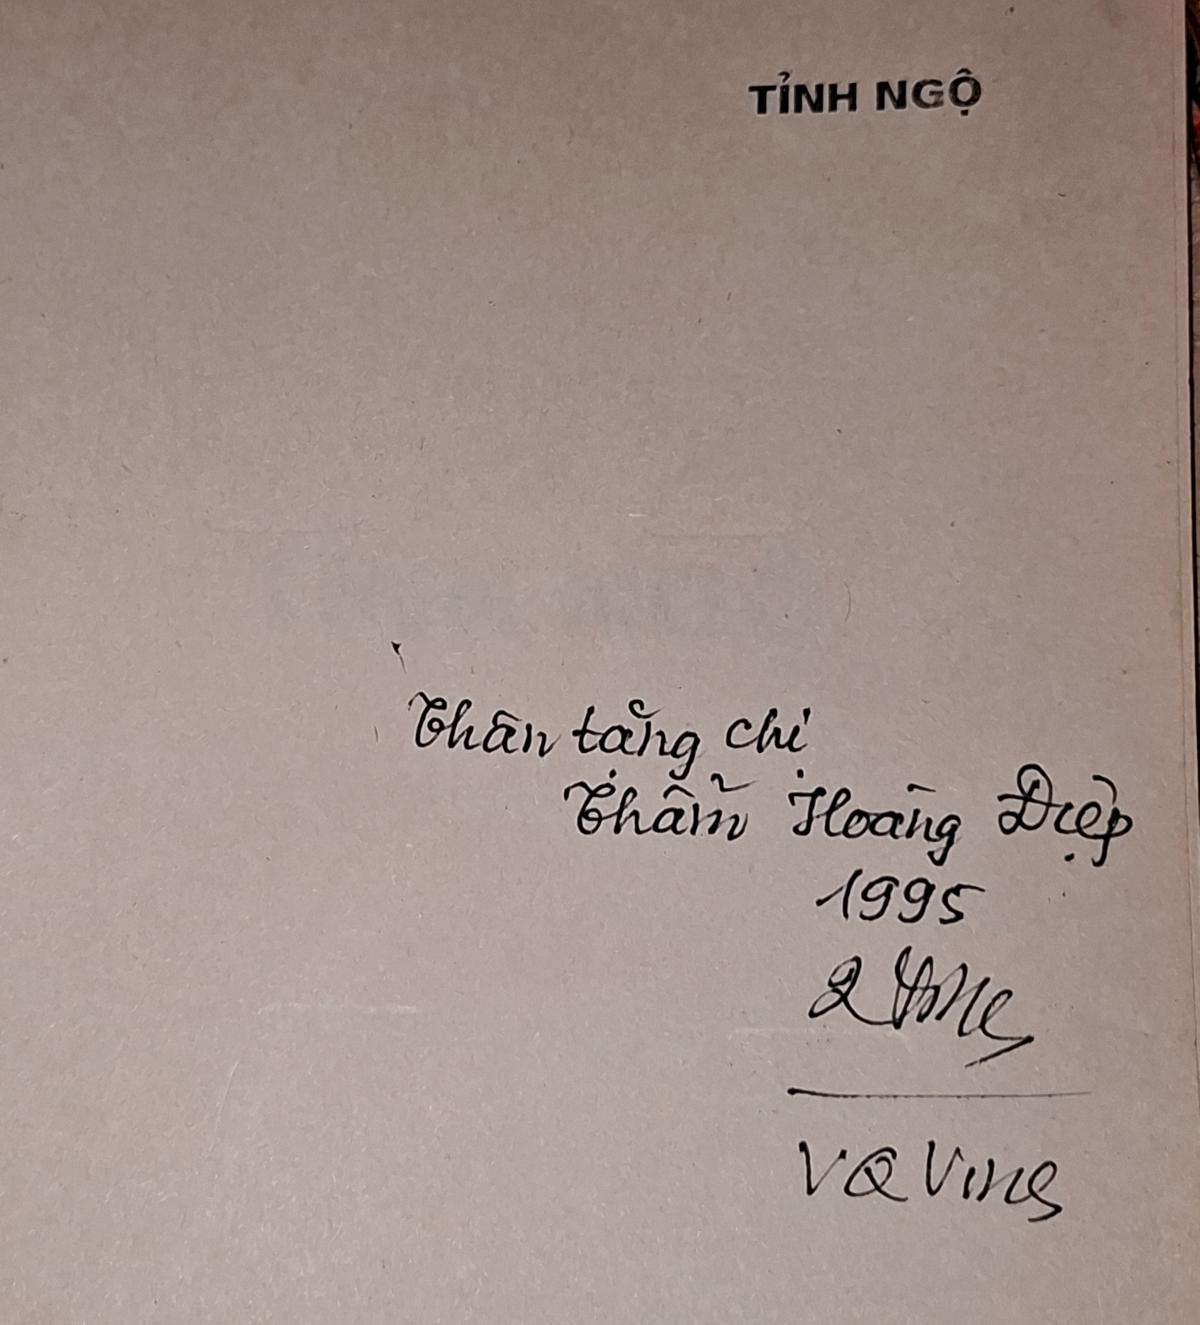 TỈNH NGỘ
Thân tặng chị
Thẩm Hoàng Điệp
1995
VQ Vinh